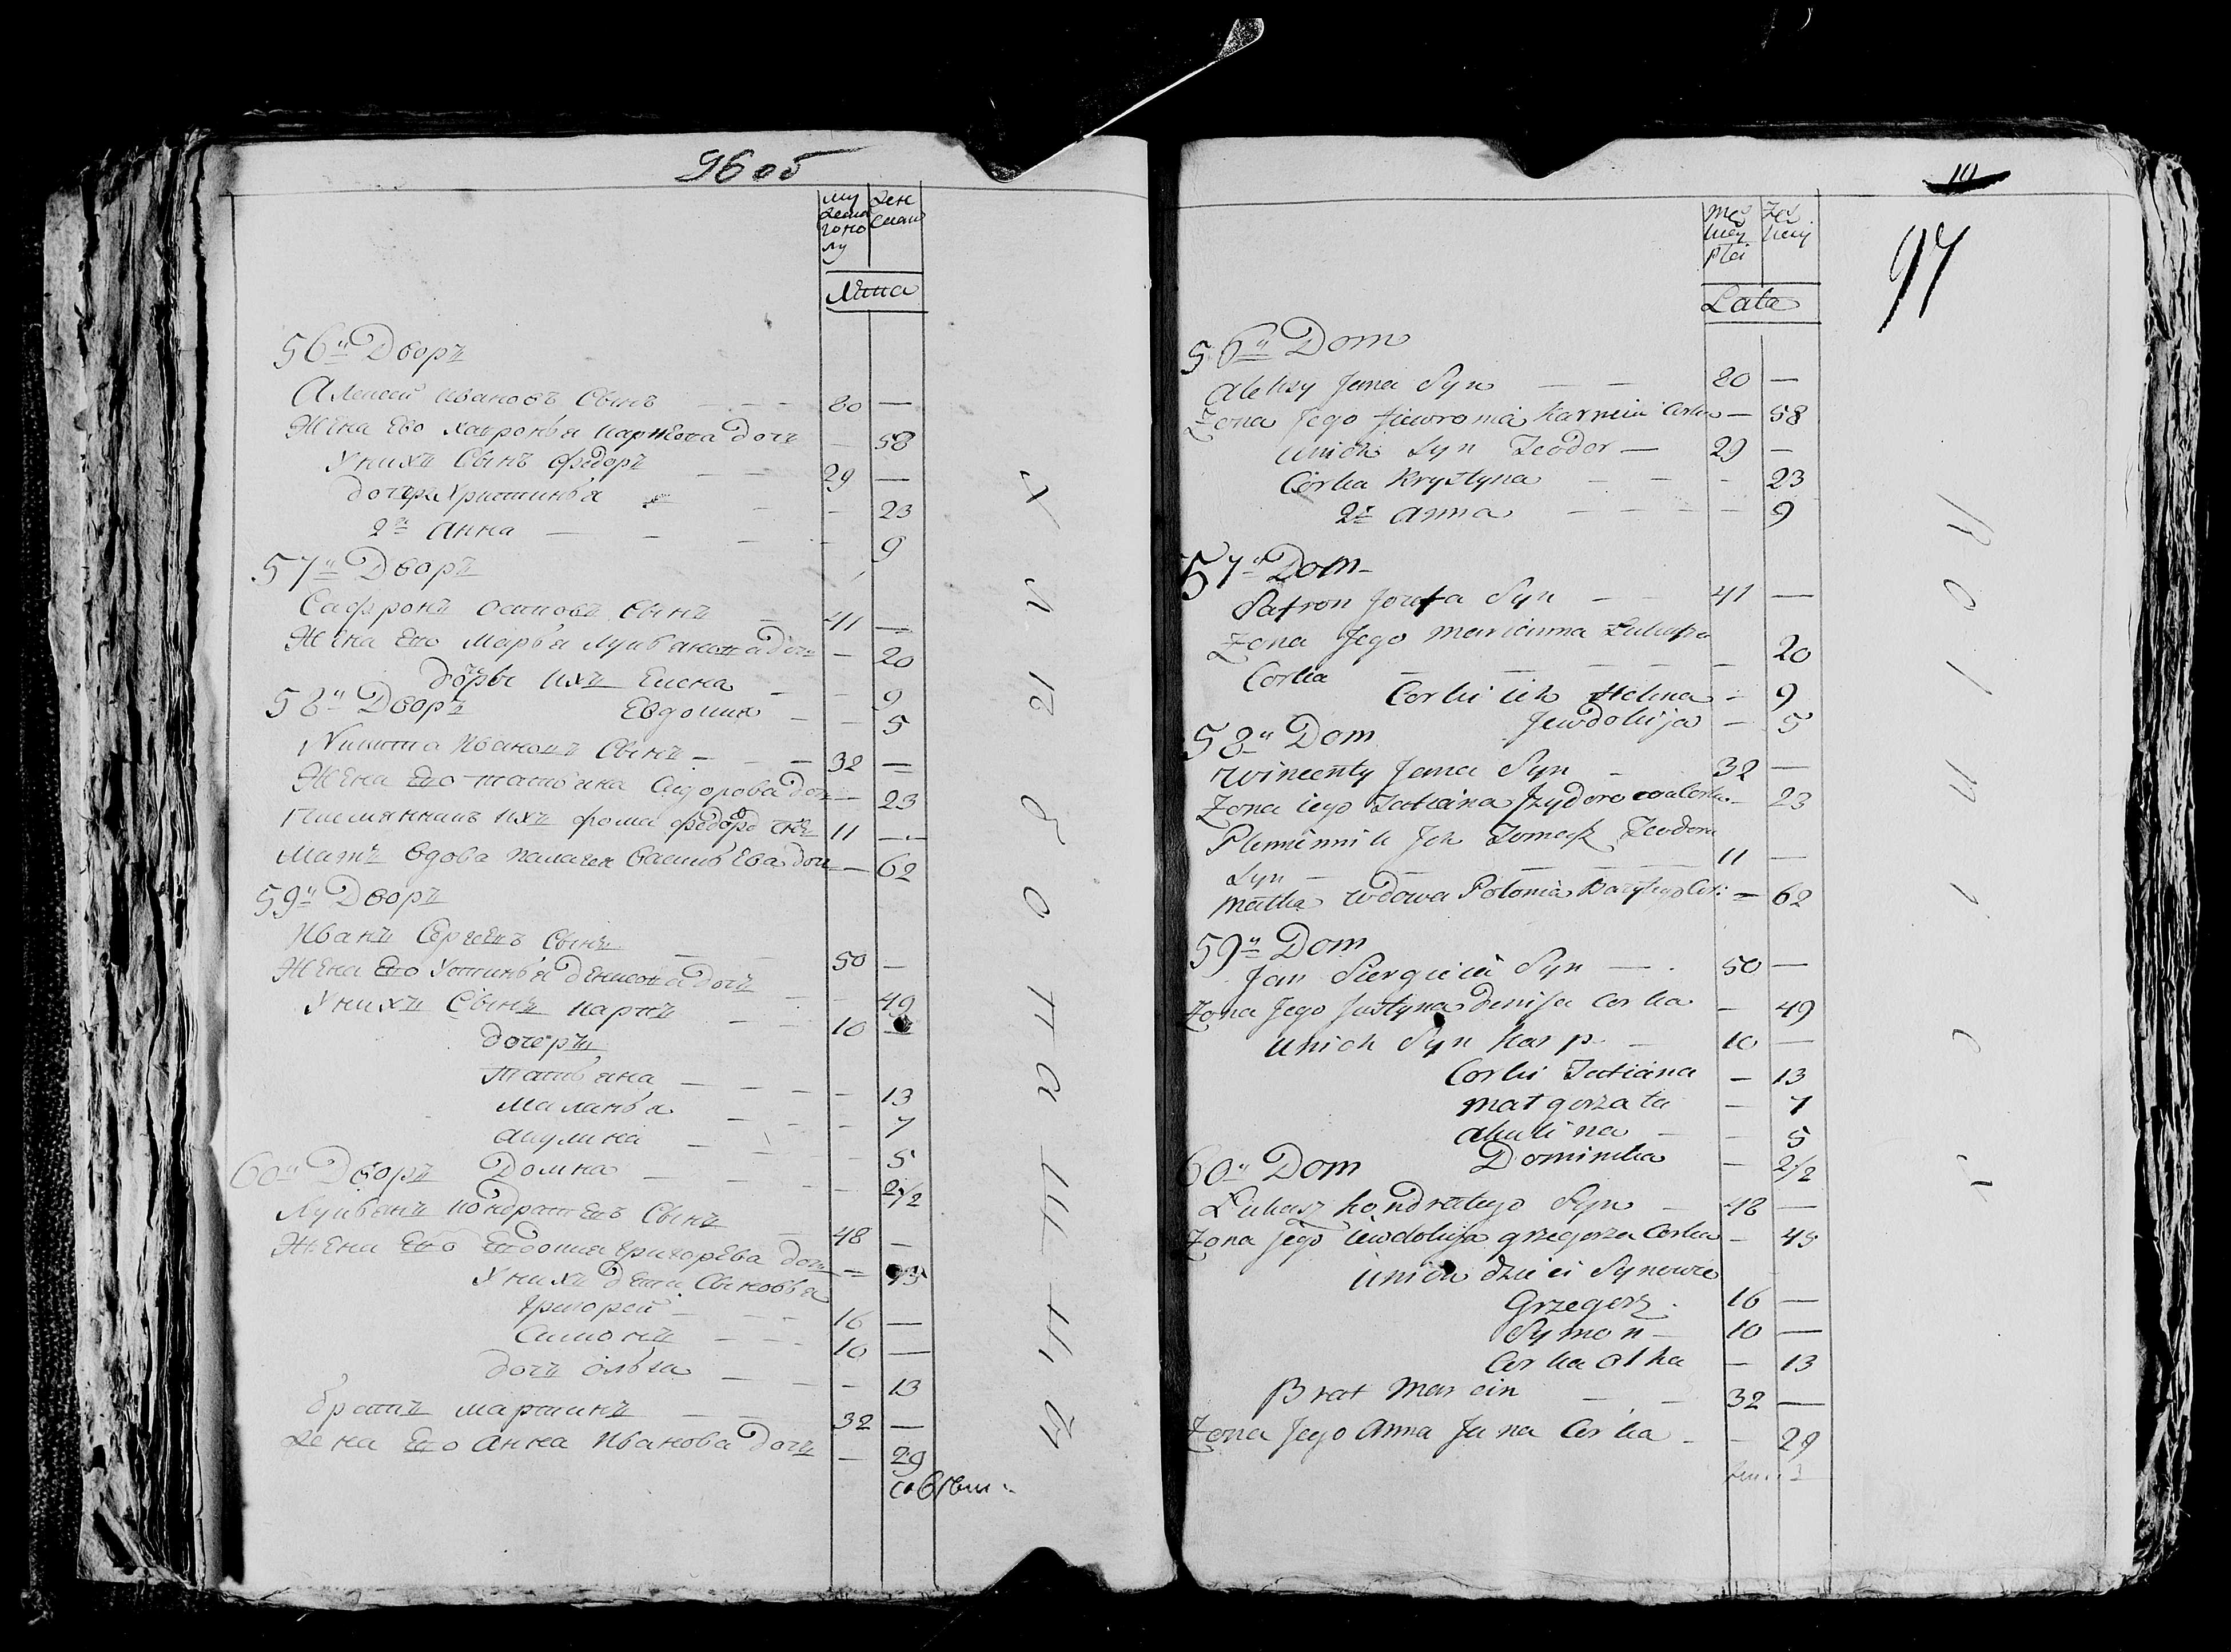 96 об
му
жеска
го по
лу
жен
скаго
Лѣта
56й Дворъ
Алексей Ивановъ Сынъ — — — 80 —
Жена Его Хавронья Карпова дочь — 58
У нихъ Сынъ Федоръ — — 29 —
дочери Христинья — — 23
2я Анна — — — — 9
57й Дворъ
Сафронъ Осиповъ Сынъ — 41 —
Жена Его Марья Лукьянова дочь — 20
дочери ихъ Елена — — 9
58й Дворъ
Евдокия — — 5
Никита Ивановъ Сынъ — — — 32 —
Жена Его татьяна Сидорова дочь — 23
Племянникъ ихъ фома федоровъ сынъ 11 —
Мать вдова Палагея Васильева дочь — 62
59й Дворъ
Иванъ Сергеевъ Сынъ — — 50 —
Жена Его Устинья денисова дочь — — 49
У нихъ Сынъ карпъ — — 10 —
дочери
Татьяна — — — — 13
Маланья — — — 7
акулина — — — 5
60й Дворъ Домна — — — 2 1/2
Лукьянъ Кондратьевъ Сынъ — 48 —
Жена Его Евдокия григорьева дочь — 45
У нихъ дети Сыновья
григорей — — — 16 —
Симонъ — — — 10 —
дочь ольга — — — 13
братъ мартинъ — — 32 —
жена Его Анна Иванова дочь — 29
10
97
Męs
kiey
płci
Żeń
skiey
Lata
56y Dom
Alexy Jana Syn — — 80 —
Żona Jego Jiewronia Karpieia Corka — 58
u nich Syn Teodor — 29 —
Corka Krystyna — — - 23
2a Anna — — — — 9
57y Dom
Safron Jozefa Syn — — 41 —
Żona Jego Marianna Łukasza
Corka — — — — — 20
Corki ich Helena — 9
Jewdokija — 5
58y Dom
Wincenty Jana Syn — 32 —
Żona iego Tatiana Jzydorowa Corka — 23
Plemiennik Jch Tomasz Teodora
Syn — — — — — 11 —
Matka wdowa Polonia Bazylego Cor: — 62
59y Dom
Jan Siergieia Syn — . 50 —
Żona Jego Justyna Denisa Corka — 49
u nich Syn Karp — 10 —
Corki Tatiana — 13
Małgorzata — 7
Akulina — — 5
60y Dom Dominika — 2 1/2
Łukasz Kondratego Syn — 48 —
Żona jego iewdokija grzegorza Corka — 45
u nich dzieci Synowie
Grzegorz . 16 —
Symon — 10 —
Corka Olha — 13
Brat Marcin — — 32 —
Żona Jego Anna Jana Corka — — 29